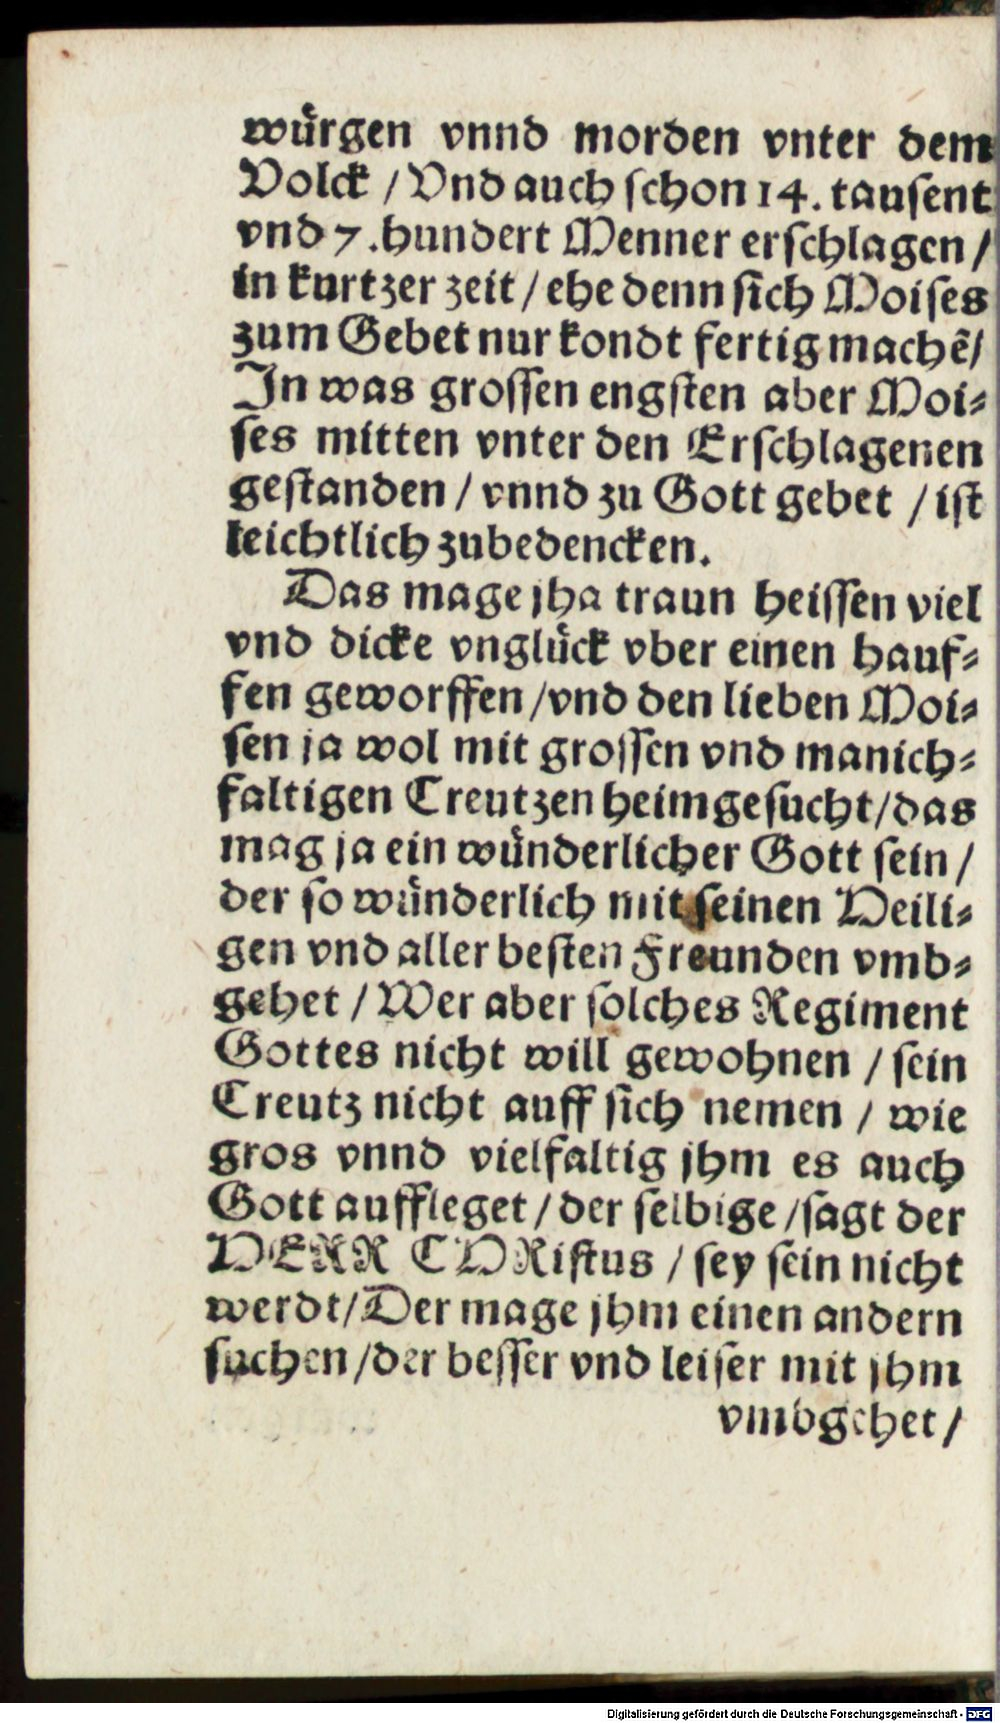 wuͤrgen vnnd morden vnter dem
Volck / Vnd auch ſchon 14. tauſent
vnd 7. hundert Menner erſchlagen /
in kurtzer zeit / ehe denn ſich Moiſes
zum Gebet nur kondt fertig machẽ /
In was groſſen engſten aber Moi⸗
ſes mitten vnter den Erſchlagenen
geſtanden / vnnd zu Gott gebet / iſt
leichtlich zubedencken.
Das mage jha traun heiſſen viel
vnd dicke vngluͤck vber einen hauf⸗
fen geworffen / vnd den lieben Moi⸗
ſen ja wol mit groſſen vnd manich⸗
faltigen Creutzen heimgeſucht / das
mag ja ein wuͤnderlicher Gott ſein /
der ſo wuͤnderlich mit ſeinen Heili⸗
gen vnd aller beſten Freunden vmb⸗
gehet / Wer aber ſolches Regiment
Gottes nicht will gewohnen / ſein
Creutz nicht auff ſich nemen / wie
gros vnnd vielfaltig jhm es auch
Gott auffleget / der ſelbige / ſagt der
HERR CHRiſtus / ſey ſein nicht
werdt / Der mage jhm einen andern
ſuchen / der beſſer vnd leiſer mit jhm
vmbgehet /
Digitalisierung gefördert durch die Deutsche Forschungsgemeinschaft - DFG